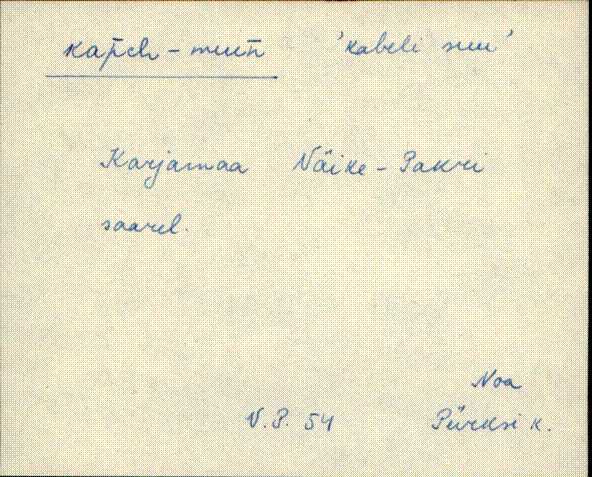 kap̄eh - mun̄ 'kabeli suu'
Karjamaa Väike-Pakri
saarel.
Noa
V.P. 54 Pürksi k.